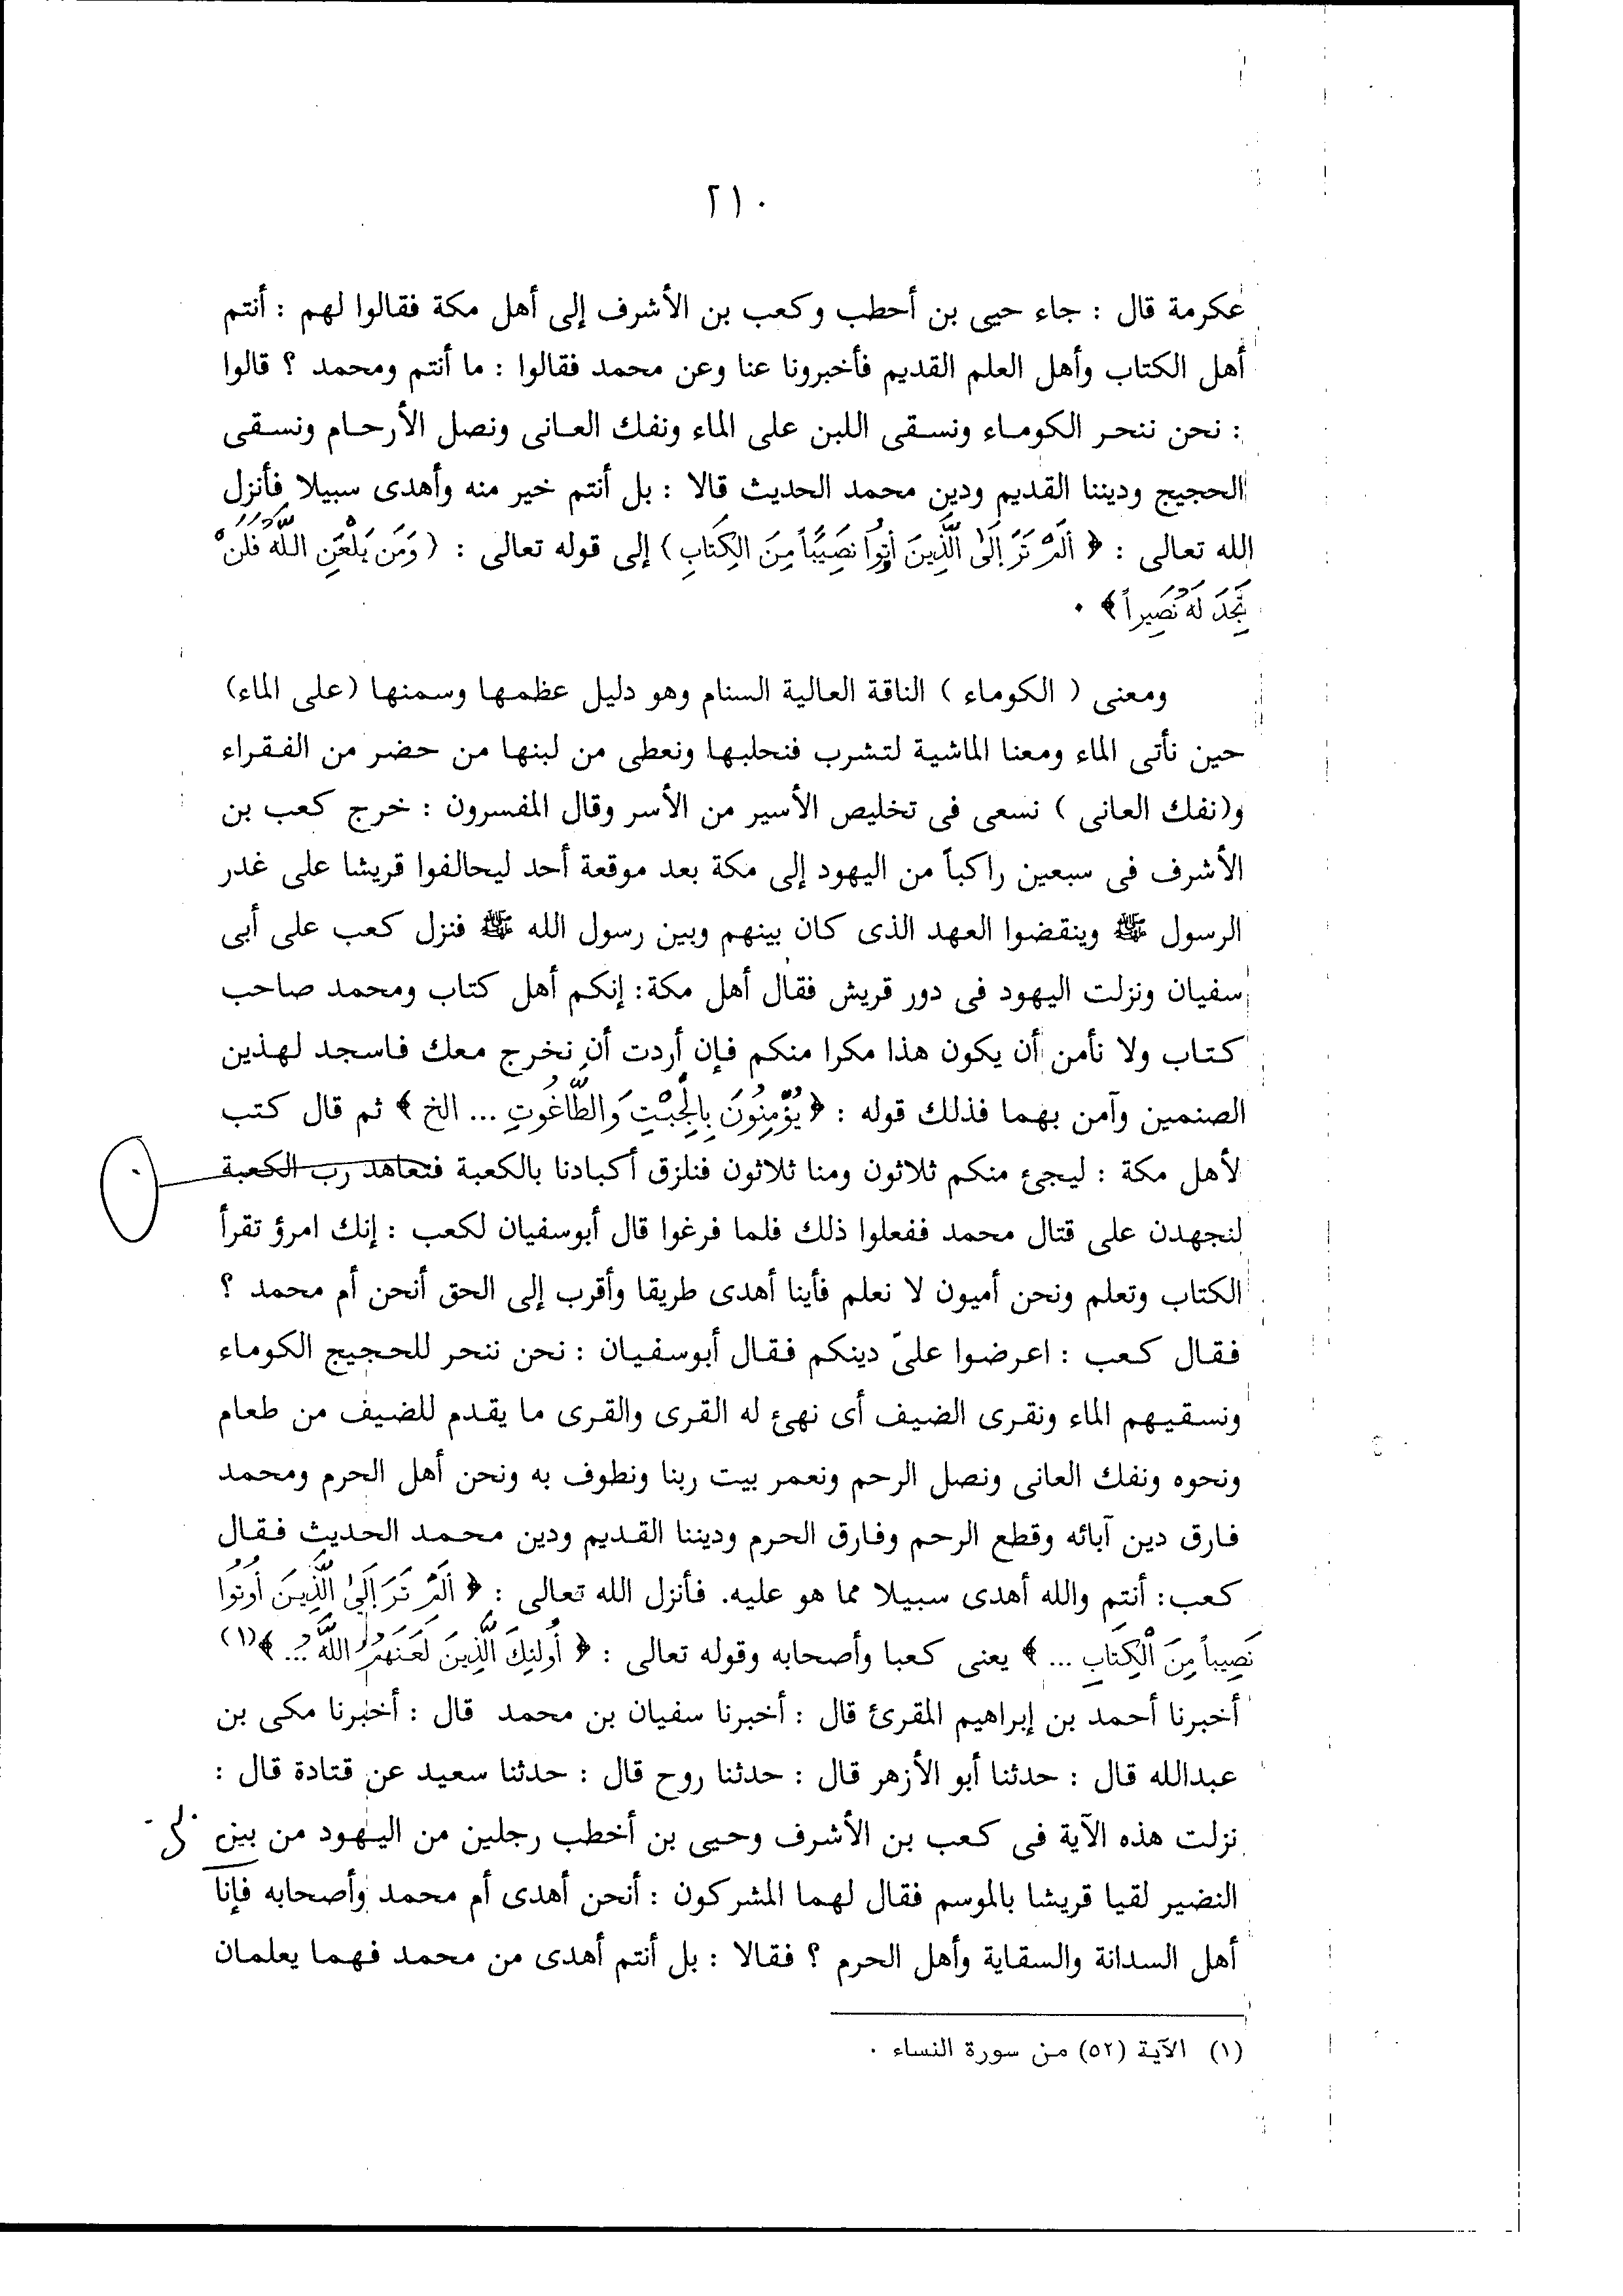 ٢١٠
عكرمة قال : جاء حيى بن أحطب وكعب بن الأشرف إلى أهل مكة فقالوا لهم : أنتم
أهل الكتاب وأهل العلم القديم فأخبرونا عنا وعن محمد فقالوا : ما أنتم ومحمد ؟ قالوا
: نحن ننحر الكوماء ونسقى اللبن على الماء ونفك العانى ونصل الأرحام ونسقى
الحجيج وديننا القديم ودين محمد الحديث قالا : بل أنتم خير منه وأهدى سبيلا فأنزل
الله تعالى : ﴿ أَلَمْ تَرَ إِلَى الَّذِينَ أُوتُوا نَصِيبًا مِنَ الكِتَابِ ) إلى قوله تعالى : ( وَمَن يَلْعَنِ اللَّهُ فَلَنْ
تَجِدَ لَهُ نَصِيراً ﴾ .
ومعنى ( الكوماء ) الناقة العالية السنام وهو دليل عظمها وسمنها (على الماء)
حين نأتى الماء ومعنا الماشية لتشرب فنحلبها ونعطى من لبنها من حضر من الفقراء
و(نفك العانى ) نسعى فى تخليص الأسير من الأسر وقال المفسرون : خرج كعب بن
الأشرف فى سبعين راكباً من اليهود إلى مكة بعد موقعة أحد ليحالفوا قريشا على غدر
الرسول ﷺ وينقضوا العهد الذى كان بينهم وبين رسول الله ﷺ فنزل كعب على أبى
سفيان ونزلت اليهود فى دور قريش فقال أهل مكة: إنكم أهل كتاب ومحمد صاحب
كتاب ولا نأمن أن يكون هذا مكرا منكم فإن أردت أن نخرج معك فاسجد لهذين
الصنمين وآمن بهما فذلك قوله : ﴿ يُؤْمِنُونَ بِالْجِبْتِ وَالطَّاغُوتِ ... الخ ﴾ ثم قال كتب
لأهل مكة : ليجئ منكم ثلاثون ومنا ثلاثون فنلزق أكبادنا بالكعبة فتعاهد رب الكعبة
لنجهدن على قتال محمد ففعلوا ذلك فلما فرغوا قال أبوسفيان لكعب : إنك امرؤ تقرأ
الكتاب وتعلم ونحن أميون لا نعلم فأينا أهدى طريقا وأقرب إلى الحق أنحن أم محمد ؟
فقال كعب : اعرضوا علىّ دينكم فقال أبوسفيان : نحن ننحر للحجيج الكوماء
ونسقيهم الماء ونقرى الضيف أى نهئ له القرى والقرى ما يقدم للضيف من طعام
ونحوه ونفك العانى ونصل الرحم ونعمر بيت ربنا ونطوف به ونحن أهل الحرم ومحمد
فارق دين آبائه وقطع الرحم وفارق الحرم وديننا القديم ودين محمد الحديث فقال
كعب: أنتم والله أهدى سبيلا مما هو عليه. فأنزل الله تعالى : ﴿ أَلَمْ تَرَ إِلَى الَّذِينَ أُوتُوا
نَصِيباً مِنَ الْكِتَابِ ... ﴾ يعنى كعبا وأصحابه وقوله تعالى : ﴿ أُولئِكَ الَّذِينَ لَعَنَهُمُ اللَّهُ ... ﴾(١)
أخبرنا أحمد بن إبراهيم المقرئ قال : أخبرنا سفيان بن محمد قال : أخبرنا مكى بن
عبدالله قال : حدثنا أبو الأزهر قال : حدثنا روح قال : حدثنا سعيد عن قتادة قال :
نزلت هذه الآية فى كعب بن الأشرف وحيى بن أخطب رجلين من اليهود من بين
النضير لقيا قريشا بالموسم فقال لهما المشركون : أنحن أهدى أم محمد وأصحابه فإنا
أهل السدانة والسقاية وأهل الحرم ؟ فقالا : بل أنتم أهدى من محمد فهما يعلمان
(١) الآية (٥٢) من سورة النساء .